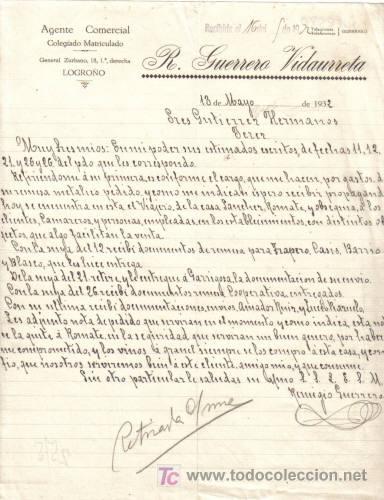 Agente Comercial
Colegiado Matriculado
General Zurbano, 18, 1.º, derecha
LOGROÑO
Recibida el
R. Guerrero Vidaurreta
18 de Mayo de 1932
Sres Gutierrez Hermanos
Jerez
Muy Sres mios: En mi poder sus estimados escritos, de fechas 11, 12,
21 y 26 y 26 del pdo que les correspondo.
Refiriendome á su primera, es conforme el cargo, que me hacen, por gastos, de
su remesa metalico pedido, y como me indican espero recibir propaganda
hoy se encuentra en esta el Viajero, de la casa Sanchez Romate, y obsequia, á los
clientes, Camareros, y personas, empleadas, en los establecimientos, con distintos ob
jetos, que algo facilitan la venta.
Con la suya del 12 recibi documentos de remesa para Frapero, Casis, Barrio
y Blasco, que les hice entrega.
De la suya del 21 retire, y le entregue a Garrigosa la documentacion de su envio.
Con la suya del 26 recibi documentos remesa Cooperativa, entregados.
Con su ultima recibi documentaciones, envios, Amador Ruiz, y Lucilo
Les adjunto nota de pedido que serviran en el momento y como indica esta nota
se la quite á Romate, en la seguridad, que serviran un buen genero, por haber
me comprometido, y los vinos á granel siempre se los compro á esta casa, y con
fio, que nosotros serviremos bien á este cliente, amigo mio, y que consume.
Sin otro particular le saludas su Afmo S. S. Q. E. S. M.
Remigio Guerrero
Retirada
TC www.todocoleccion.net